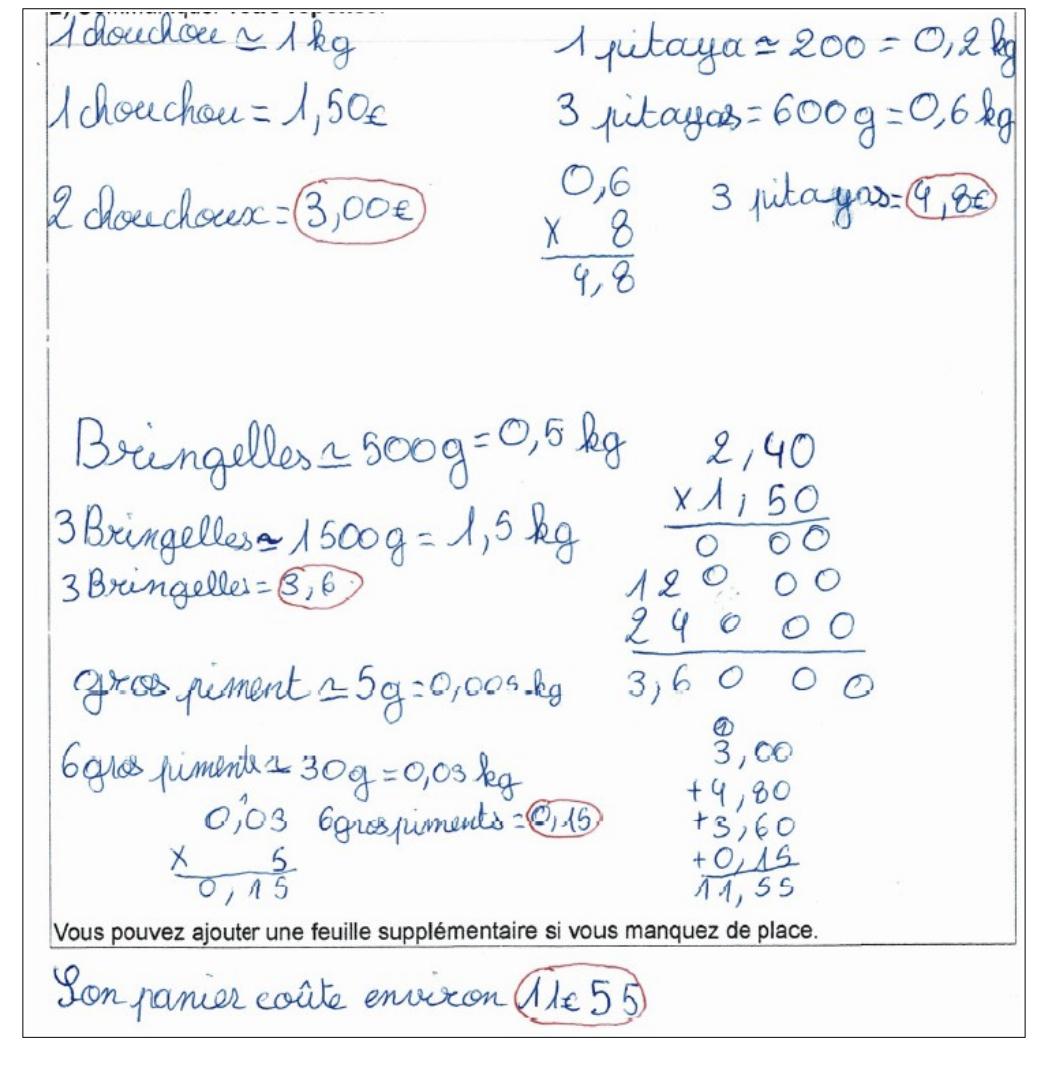 1 chouchou ≃ 1 kg
1 chouchou = 1,50€
2 chouchoux = 3,00€
1 pitaya ≃ 200 = 0,2 kg
3 pitayas = 600 g = 0,6 kg
0,6
x 8
4,8
3 pitayas = 4,8€
Bringelles ≃ 500g = 0,5 kg
3 Bringelles ≃ 1500g = 1,5 kg
3 Bringelles = 3,6
2,40
x 1,50
0 00
120 00
240 00
3,60 00
gros piment ≃ 5g = 0,005 kg
6 gros piments ≃ 30g = 0,03 kg
0,03
x 5
0,15
6 gros piments = 0,15
1
3,00
+4,80
+3,60
+0,15
11,55
Vous pouvez ajouter une feuille supplémentaire si vous manquez de place.
Son panier coûte environ 11€55